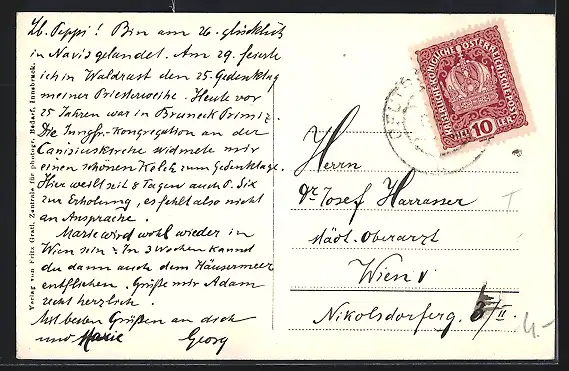 Lb. Peppi! Bin am 26. glücklich
in Navis gelandet. Am 29. feierte
ich in Waldrast den 25. Gedenktag
meiner Priesterweihe. Heute vor
25 Jahren war in Bruneck Primiz.
Die Jungfr.-Kongregation an der
Canisiuskirche widmete mir
einen schönen Kelch zum Gedenktage.
Hier weilt seit 8 Tagen auch P. Six
zur Erholung, es fehlt also nicht
an Ansprache.
Marie wird wohl wieder in
Wien sein? In 3 Wochen kannst
du dann auch dem Häusermeer
entfliehen. Grüße mir Adam
recht herzlich.
Mit besten Grüßen an dich
und Marie Georg
Verlag von Fritz Gratl, Zentrale für photogr. Bedarf, Innsbruck.
KAISERLICHE KÖNIGLICHE ÖSTERREICHISCHE POST
10 HELLER
Herrn
Dr. Josef Harrasser
städt. Oberarzt
Wien V
Nikolsdorferg. /II
4.-